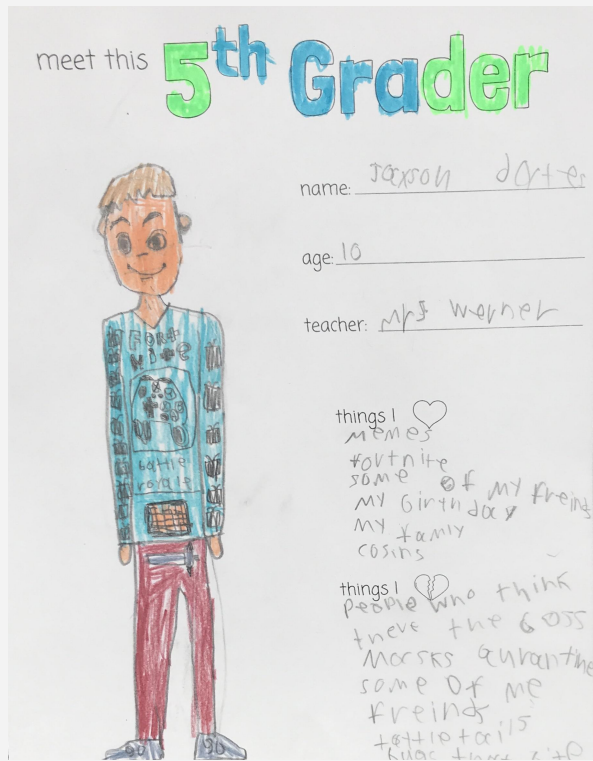 meet this 5th Grader
name: Jaxson
age: 10
teacher: Mrs Werner
Fort
Nite
battle
royale
things I
memes
fortnite
some of my freinds
my birthday
my famly
cosins
things I
people who think
there the boss
Marsks qurantine
some Of me
freinds
tattletails
bugs that bite